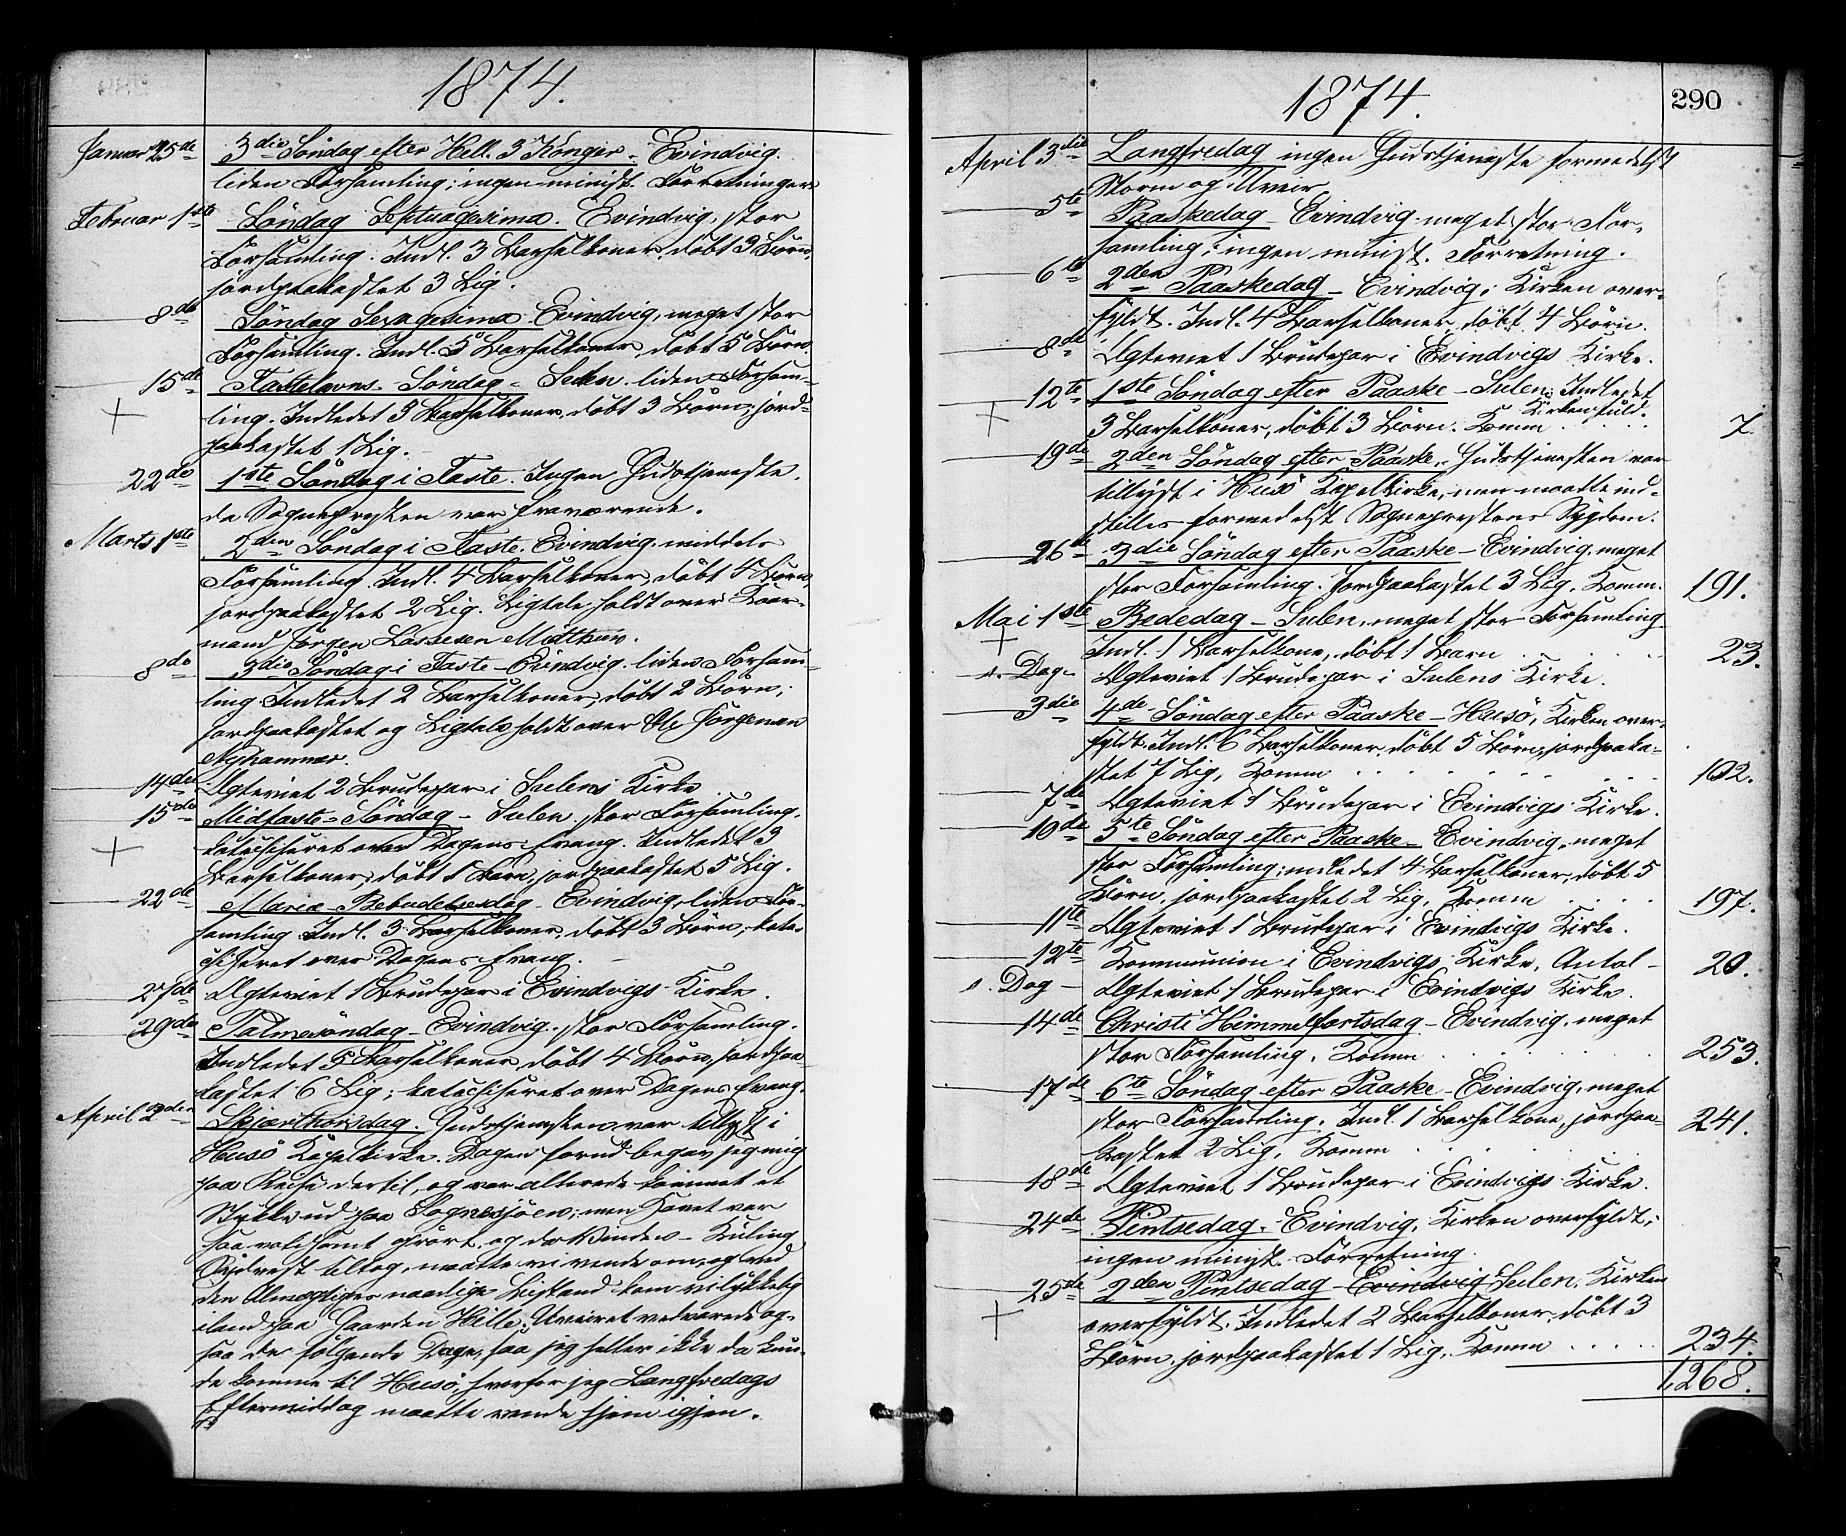 1874.
Januar 25de 3die Söndag efter Hell. 3 Konger. Evindvig.
liden Forsamling; ingen minist. Forretninger.
Februar 1ste Söndag Septuagesima. Evindvig, stor
Forsamling. Indl. 3 Barselkoner, döbt 3 Börn,
jordpaakastet 3 Lig.
8de Söndag Sexagesima. Evindvig, meget stor
Forsamling. Indl. 5 Barselkoner, döbt 5 Börn.
15de Fastelavns-Söndag - Sulen. liden Forsam-
ling. Indledet 3 Barselkoner, döbt 3 Börn, jord-
paakastet 1 Lig.
22de 1ste Söndag i Faste. Ingen Gudstjeneste,
da Sognepresten var fraværende.
Marts 1ste 2den Söndag i Faste. Evindvig. middels
Forsamling. Indl. 4 Barselkoner, döbt 4 Börn,
jordpaakastet 2 Lig. Ligtale holdt over
mand Jörgen Lassesen
8de 3die Söndag i Faste - Evindvig. liden Forsam-
ling. Indledet 2 Barselkoner, döbt 2 Börn,
jordpaakastet og Ligtale holdt over Ole Jörgensen
Nyhammer.
14de Ægteviet 2 Brudepar i Sulens Kirke.
15de Midfaste-Söndag - Sulen. stor Forsamling.
katechiseret over Dagens Evang. Indledet 3
Barselkoner, döbt 1 Barn, jordpaakastet 5 Lig.
22de Maria Bebudelsesdag - Evindvig, liden For-
samling. Indl. 3 Barselkoner, döbt 3 Börn, kate-
chiseret over Dagens Evang.
27de Ægteviet 1 Brudepar i Evindvigs Kirke.
29de Palmesöndag - Evindvig. stor Forsamling.
Indledet 5 Barselkoner, döbt 4 Börn, jordpaa-
kastet 6 Lig; katechiseret over Dagens Evang.
April 2den Skjærthorsdag. Gudstjenesten var tillyst i
Husö Kapelkirke. Dagen forud begav jeg mig
paa Reise dertil, og var allerede kommet et
Stykke ud paa Sognesjöen; men Havet var
saa voldsomt oprört, og da Vinden - Kuling
Sydvest tiltog, maatte vi vende om, og ved
den Almægtiges naadige Bistand kom vi lykkelig
iland paa Gaarden Hille. Uveiret vedvarede og-
saa de fölgende Dage, saa jeg heller ikke da kun-
de komme til Husö, hvorfor jeg Langfredags
Eftermiddag maatte vende hjem igjen.
1874.
290
April 3die Langfredag ingen Gudstjeneste formedelst
Storm og Uveir.
5te Paaskedag - Evindvig. meget stor For-
samling; ingen minist. Forretning.
6te 2den Paaskedag - Evindvig; Kirken over-
fyldt. Indl. 4 Barselkoner, döbt 4 Börn.
8de Ægteviet 1 Brudepar i Evindvigs Kirke.
12te 1ste Söndag efter Paaske - Sulen; Indledet
Kirken fuld.
3 Barselkoner, döbt 3 Börn. Komm . . . . 7.
19de 2den Söndag efter Paaske. Gudstjenesten var
tillyst i Husö Kapelkirke, men maatte ind-
stilles formedelst Sogneprestens Sygdom.
26de 3die Söndag efter Paaske - Evindvig. meget
stor Forsamling. Jordpaakastet 3 Lig. Komm. 191.
Mai 1ste Bededag - Sulen, meget stor Forsamling
Indl. 1 Barselkone, döbt 1 Barn . . . . 23.
s. Dag - Ægteviet 1 Brudepar i Sulens Kirke.
3die 4de Söndag efter Paaske - Husö, Kirken over-
fyldt. Indl. 6 Barselkoner, döbt 5 Börn, jordpaaka-
stet 7 Lig, Komm . . . . 102.
7de Ægteviet 1 Brudepar i Evindvigs Kirke.
10de 5te Söndag efter Paaske - Evindvig, meget
stor Forsamling; indledet 4 Barselkoner, döbt 5
Börn, jordpaakastet 2 Lig. Komm . . . . 197.
11te Ægteviet 1 Brudepar i Evindvigs Kirke.
12te Kommunion i Evindvigs Kirke, Antal - 20.
s. Dag - Ægteviet 1 Brudepar i Evindvigs Kirke.
14de Christi Himmelfartsdag - Evindvig, meget
stor Forsamling. Komm . . . . 253.
17de 6te Söndag efter Paaske - Evindvig, meget
stor Forsamling. Indl. 1 Barselkone, jordpaa-
kastet 2 Lig, Komm . . . . 241.
18de Ægteviet 1 Brudepar i Evindvigs Kirke.
24de Pintsedag. Evindvig, Kirken overfyldt;
ingen minist. Forretning.
25de 2den Pintsedag - Evindvig Sulen. Kirken
overfyldt. Indledet 2 Barselkoner, döbt 3
Börn, jordpaakastet 1 Lig. Komm . . . . . 234.
1,268.